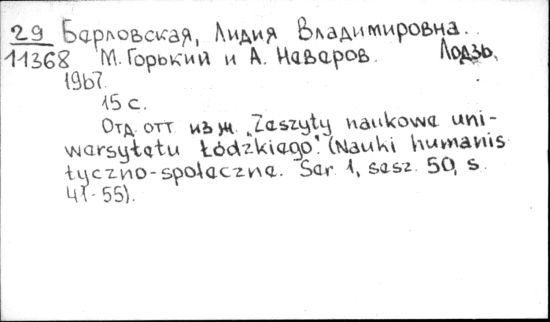 29 Барловская, Лидия Владимировна.
11368 М. Горький и А. Неверов. Лодзь,
1967.
15 с.
Отд. отт. из ж. "Zeszyty naukowe uni-
wersytetu Łódzkiego". (Nauki humanis
tyczno-społeczne. Ser. 1, zesz. 50, s.
41-55).